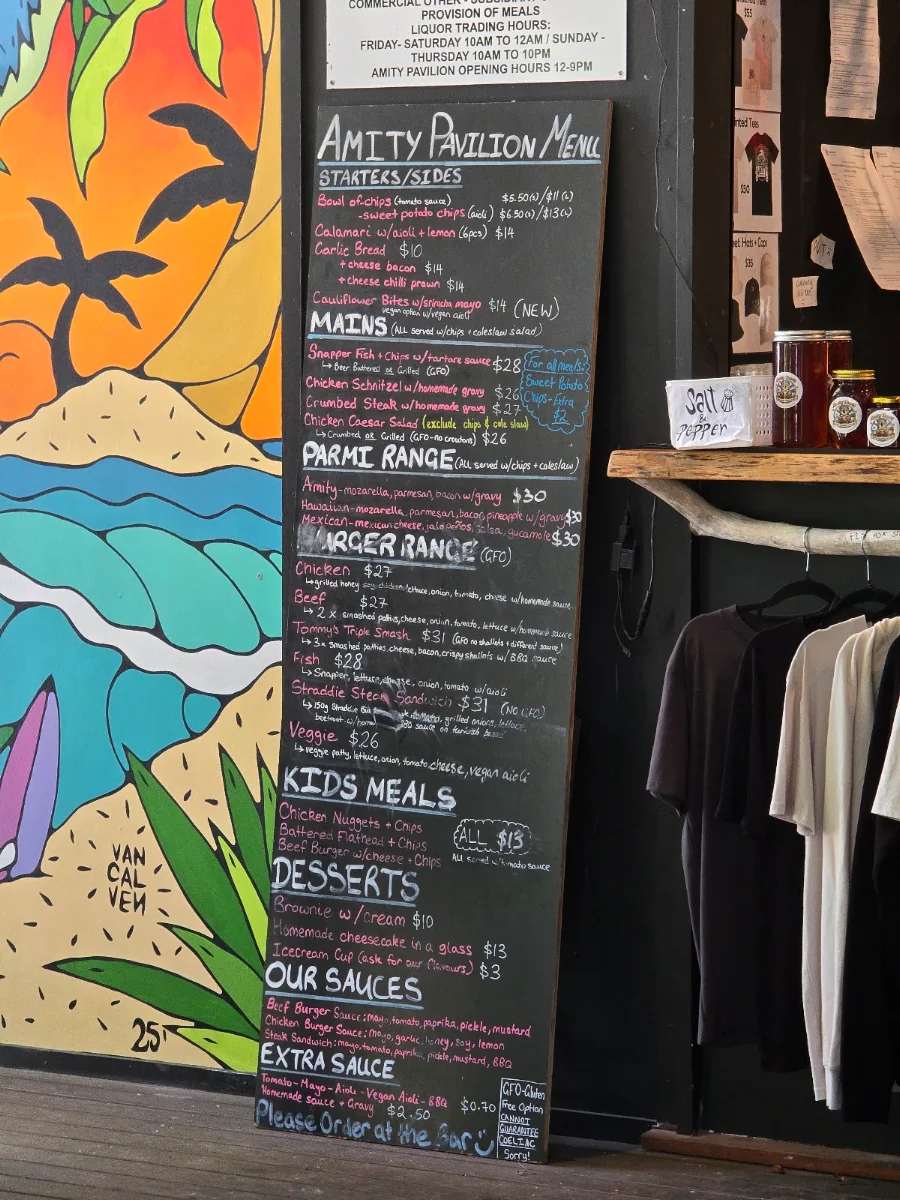 COMMERCIAL OTHER - SUBSIDIARY
PROVISION OF MEALS
LIQUOR TRADING HOURS:
FRIDAY- SATURDAY 10AM TO 12AM / SUNDAY -
THURSDAY 10AM TO 10PM
AMITY PAVILION OPENING HOURS 12-9PM
AMITY PAVILION MENU
STARTERS/SIDES
Bowl of chips (tomato sauce) $5.50(s)/$11(L)
-sweet potato chips (aioli) $6.50(s)/$13(L)
Calamari w/aioli + lemon (6pcs) $14
Garlic Bread $10
+ cheese bacon $14
+ cheese chilli prawn $14
Cauliflower Bites w/sriracha mayo $14 (NEW)
vegan option w/vegan aioli
MAINS (ALL served w/chips + coleslaw salad)
Snapper Fish + Chips w/tartare sauce $28
↳ Beer Battered or Grilled (GFO)
Chicken Schnitzel w/homemade gravy $26
Crumbed Steak w/homemade gravy $27
Chicken Caesar Salad (exclude chips & coleslaw)
↳ Crumbed OR Grilled (GFO-no croutons) $26
For all meals:
Sweet Potato
Chips-Extra
$2
PARMI RANGE (ALL served w/chips + coleslaw)
Amity-mozarella, parmesan, bacon w/gravy $30
Hawaiian-mozarella, parmesan, bacon, pineapple w/gravy $30
Mexican-mexican cheese, jalapeños, salsa, gucamole $30
BURGER RANGE (GFO)
Chicken $27
↳ grilled honey soy chicken, lettuce, onion, tomato, cheese w/homemade sauce
Beef $27
↳ 2 x smashed patties, cheese, onion, tomato, lettuce w/homemade sauce
Tommy's Triple Smash $31 (GFO no shallots + different sauce)
↳ 3x smashed patties, cheese, bacon, crispy shallots w/ BBQ sauce
Fish $28
↳ Snapper, lettuce, cheese, onion, tomato w/aioli
Straddie Steak Sandwich $31 (NO GFO)
↳ 150g Straddie tomato, grilled onions, lettuce,
beetroot w/home BBQ sauce on turkish bread
Veggie $26
↳ veggie patty, lettuce, onion, tomato, cheese, vegan aioli
KIDS MEALS
Chicken Nuggets + Chips
Battered Flathead + Chips
Beef Burger w/cheese + Chips
ALL $13
ALL served w/tomato sauce
DESSERTS
Brownie w/cream $10
Homemade cheesecake in a glass $13
Icecream Cup (ask for our flavours) $3
OUR SAUCES
Beef Burger Sauce: mayo, tomato, paprika, pickle, mustard
Chicken Burger Sauce: mayo, garlic, honey, soy, lemon
Steak Sandwich: mayo, tomato, paprika, pickle, mustard, BBQ
EXTRA SAUCE
Tomato - Mayo - Aioli - Vegan Aioli - BBQ $0.70
Homemade sauce + Gravy $2.50
Please Order at the Bar
GFO-Gluten
Free Option
CANNOT
GUARANTEE
COELIAC
Sorry!
VAN
CAL
VEN
25'
$55
Tees
$50
Hats + Caps
$35
Salt
&
Pepper